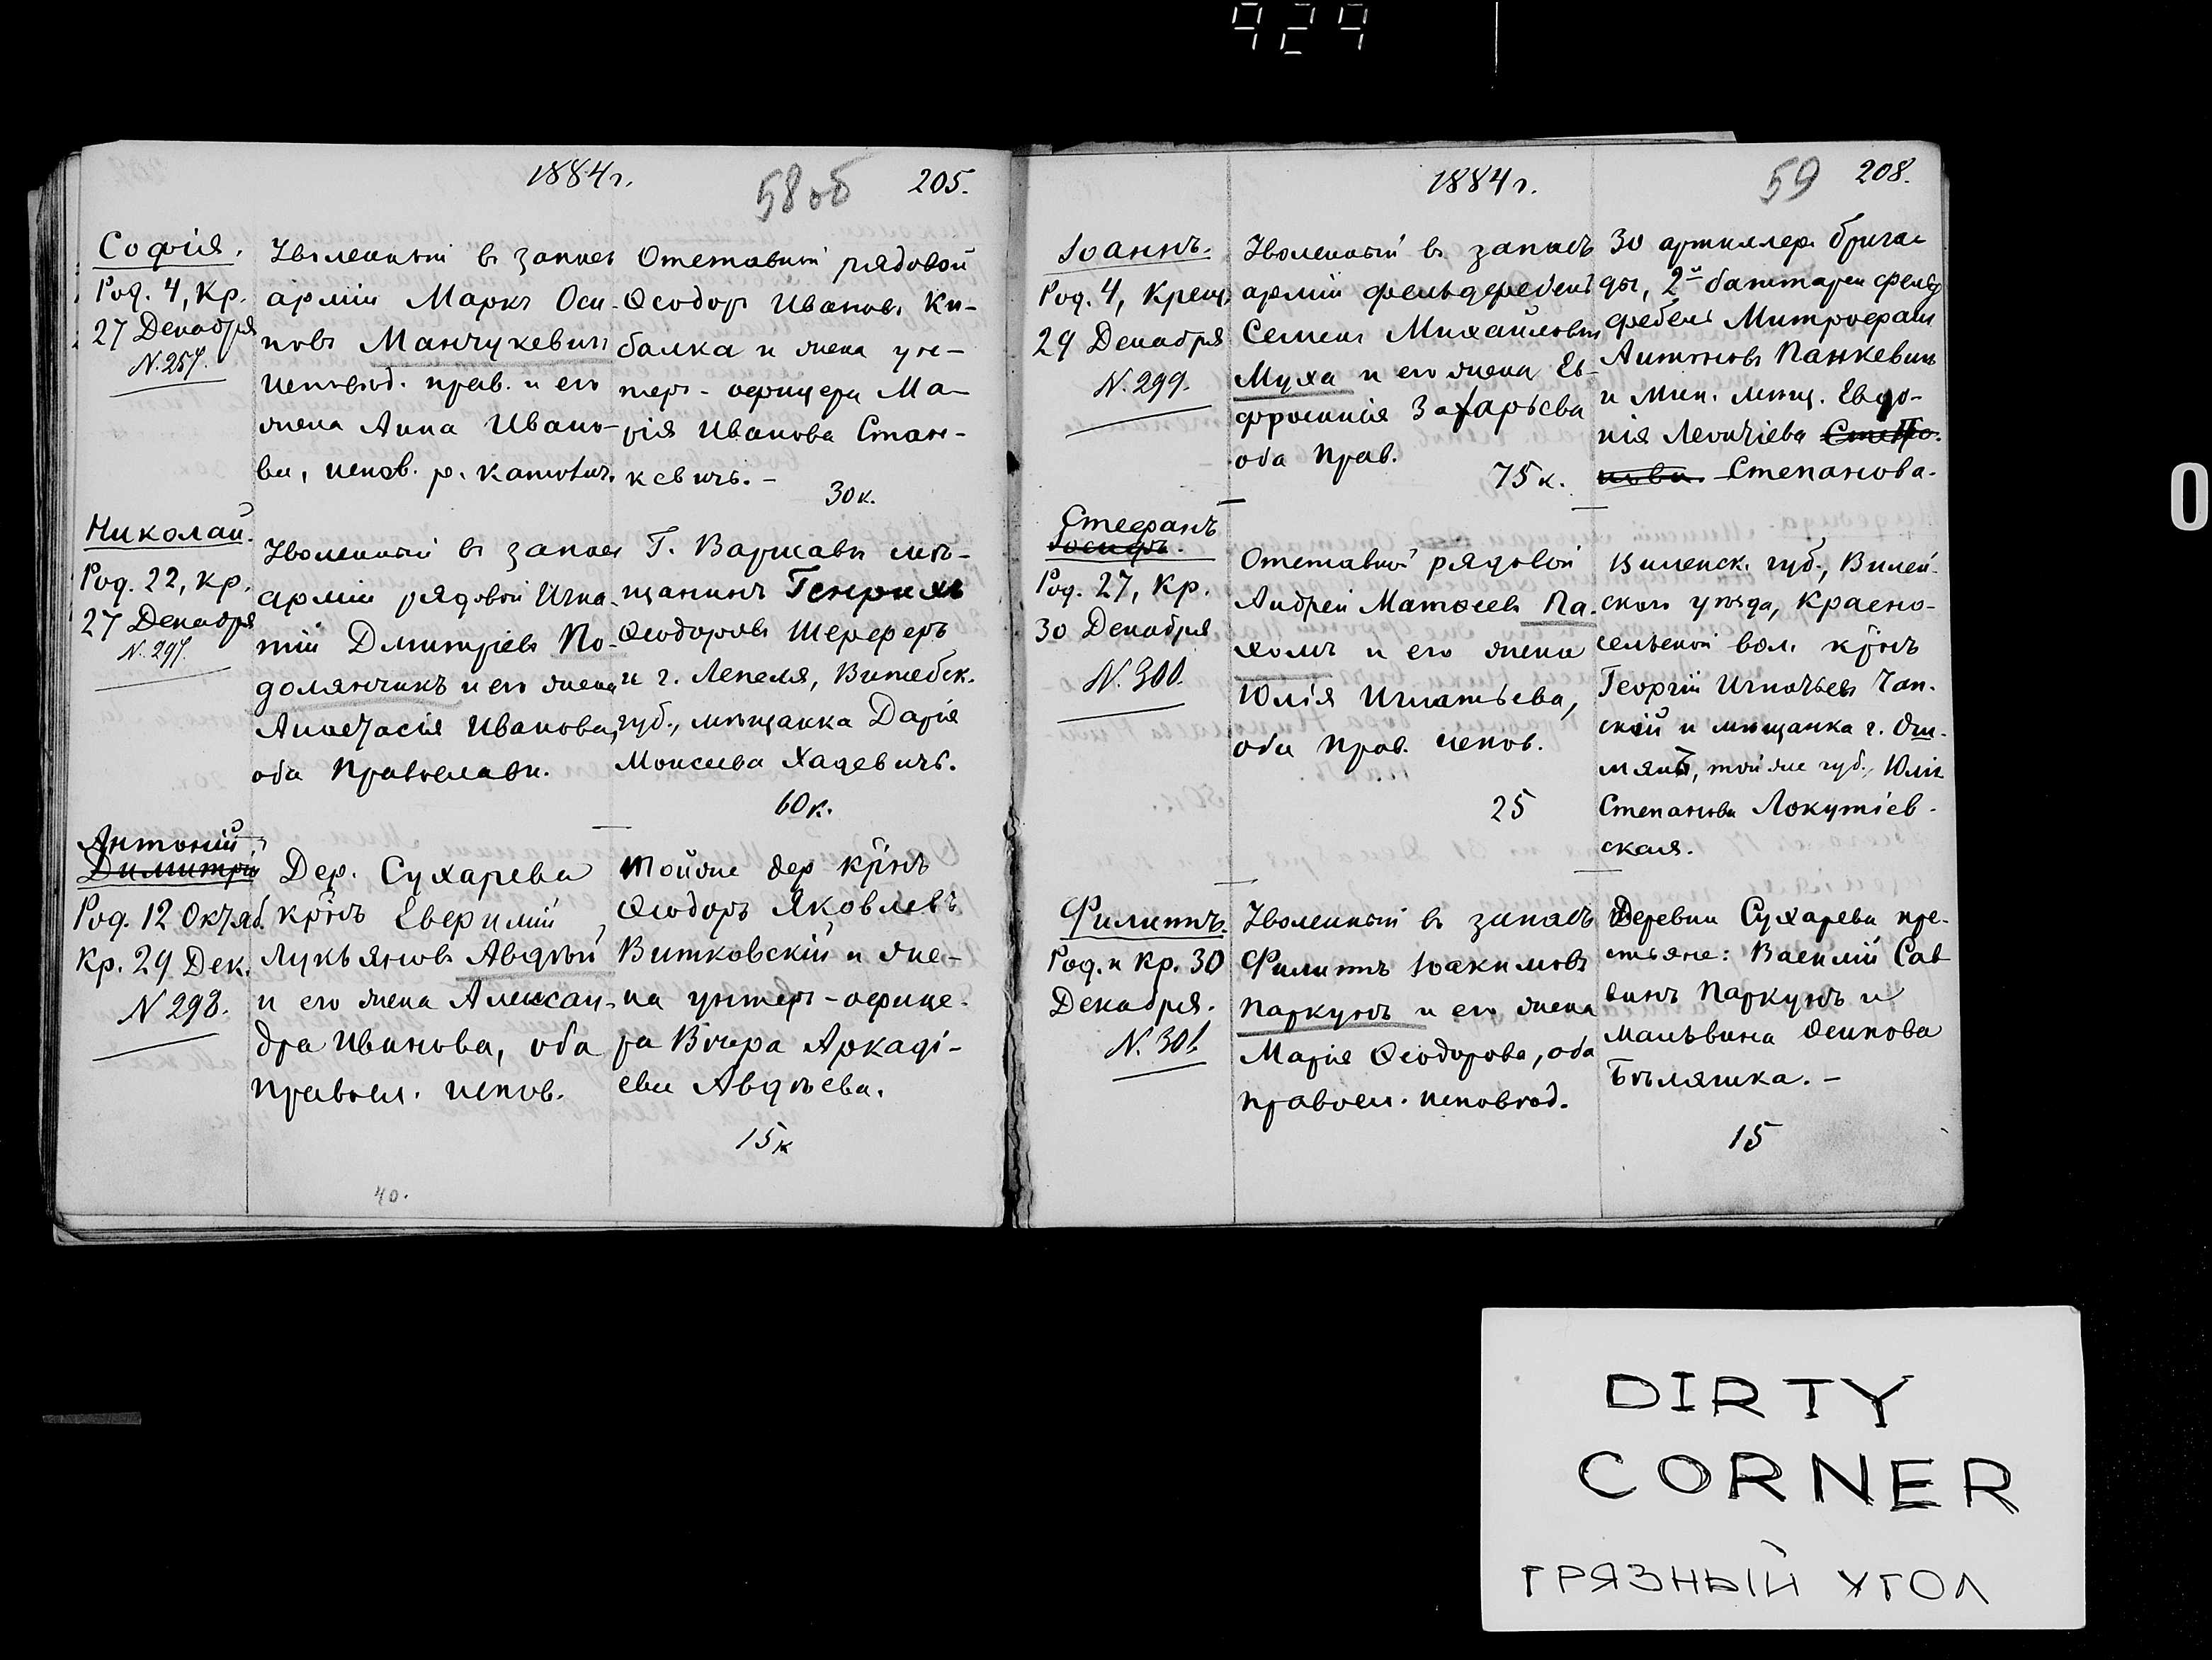 929
1884 г.
58 об
205.
Софія.
Род. 4, Кр.
27 Декабря
N. 257.
Уволенный въ запасъ
арміи Маркъ Оси-
повъ Манчукевичъ
исповѣд. прав. и его
жена Анна Ивано-
ва, испов. р. католич.
Отставный рядовой
Ѳеодоръ Ивановъ Ки-
балка и жена ун-
теръ-офицера Ма-
рія Иванова Стан-
кевичъ. -
30 к.
Николай.
Род. 22, Кр.
27 Декабря
N. 297.
Уволенный въ запасъ
арміи рядовой Игна-
тій Дмитріевъ По-
долянчикъ и его жена
Анастасія Иванова,
оба Православн.
Г. Варшавы мѣ-
щанинъ Генрихъ
Ѳеодоровъ Шереръ
и г. Лепеля, Витебск.
губ., мѣщанка Дарія
Моисеева Хадевичъ.
60 к.
Антоній
Димитрій
Род. 12 Октяб.
Кр. 29 Дек.
N 298.
Дер. Сухарева
кр-нъ Еверимій
Лукьяновъ Авдѣй
и его жена Алексан-
дра Иванова, оба
правосл. испов.
Той же дер кр-нъ
Ѳеодоръ Яковлевъ
Витковскій и же-
на унтеръ-офице-
ра Вѣра Аркаді-
ева Авдѣева.
15 к
40.
1884 г.
59
208.
Іоаннъ.
Род. 4, Крещ.
29 Декабря
N. 299.
Уволенный въ запасъ
арміи фельдфебель
Семенъ Михайловъ
Муха и его жена Ев-
фросинія Захарьева
оба Прав.
75 к.
30 артиллер. брига-
ды, 2й баттареи фельд
фебель Митрофанъ
Антоновъ Панкевичъ
и Мин. мѣщ. Евдо-
кія Леонтіева
Степанова.
Стефанъ
Іосифъ.
Род. 27, Кр.
30 Декабря
N. 300.
Отставной рядовой
Андрей Матѳеевъ Па-
холъ и его жена
Юлія Игнатьева,
оба Прав. испов.
25
Виленск. губ., Вилей-
скаго уѣзда, Красно-
сельской вол. кр-нъ
Георгій Игнатьевъ Чап-
скій и мѣщанка г. Ош-
мянъ, той же губ., Юлія
Степанова Локутіев-
ская.
Филиппъ.
Род. и Кр. 30
Декабря.
N. 301.
Уволенный въ запасъ
Филиппъ Іоакимовъ
Паркунъ и его жена
Марія Ѳеодорова, оба
правосл. исповѣд.
Деревни Сухарева кре-
стьяне: Василій Сав
винъ Паркунъ и
Мальвина Осипова
Бѣляшка. -
15
0
DIRTY
CORNER
ГРЯЗНЫЙ УГОЛ